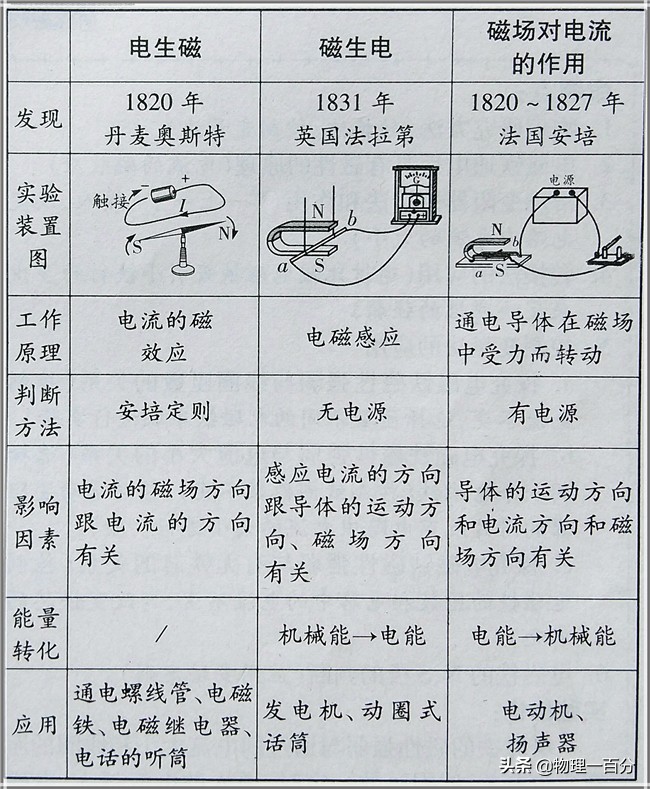 电生磁
磁生电
磁场对电流
的作用
发现
1820 年
丹麦奥斯特
1831 年
英国法拉第
1820 ~ 1827 年
法国安培
实验
装置
图
触接
−
+
I
S
N
G
N
b
a
S
电源
N
b
a
S
工作
原理
电流的磁
效应
电磁感应
通电导体在磁场
中受力而转动
判断
方法
安培定则
无电源
有电源
影响
因素
电流的磁场方向
跟电流的方向
有关
感应电流的方向
跟导体的运动方
向、磁场方向
有关
导体的运动方向
和电流方向和磁
场方向有关
能量
转化
/
机械能→电能
电能→机械能
应用
通电螺线管、电磁
铁、电磁继电器、
电话的听筒
发电机、动圈式
话筒
电动机、
扬声器
头条 @物理一百分